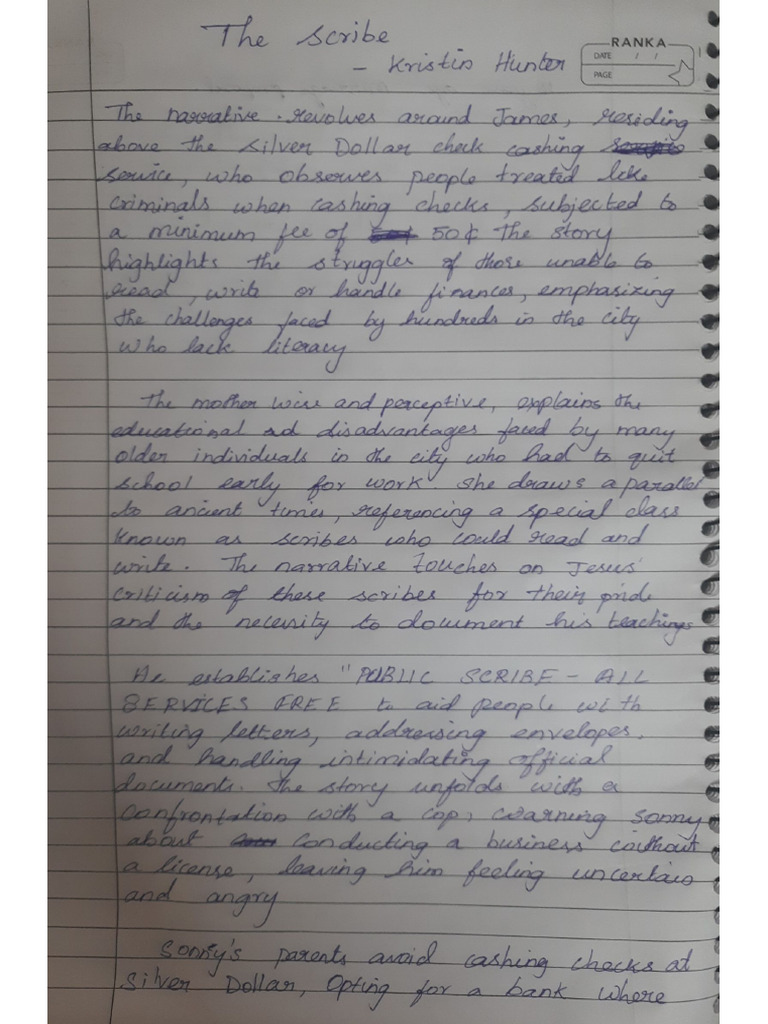 The Scribe
- Kristin Hunter
RANKA
DATE / /
PAGE
The narrative revolves around James, residing
above the Silver Dollar check cashing
service, who observes people treated like
criminals when cashing checks, subjected to
a minimum fee of 50¢ The story
highlights the struggles of those unable to
read, write or handle finances, emphasizing
the challenges faced by hundreds in the city
who lack literacy
The mother wise and perceptive, explains the
educational disadvantages faced by many
older individuals in the city who had to quit
school early for work she draws a parallel
to ancient times, referencing a special class
known as scribes who could read and
write. The narrative touches on Jesus'
criticism of these scribes for their pride
and the necessity to document his teachings
He establishes "PUBLIC SCRIBE - ALL
SERVICES FREE to aid people with
writing letters, addressing envelopes,
and handling intimidating official
documents. The story unfolds with a
confrontation with a cop, warning Sonny
about conducting a business without
a license, leaving him feeling uncertain
and angry
Sonny's parents avoid cashing checks at
Silver Dollar, Opting for a bank where